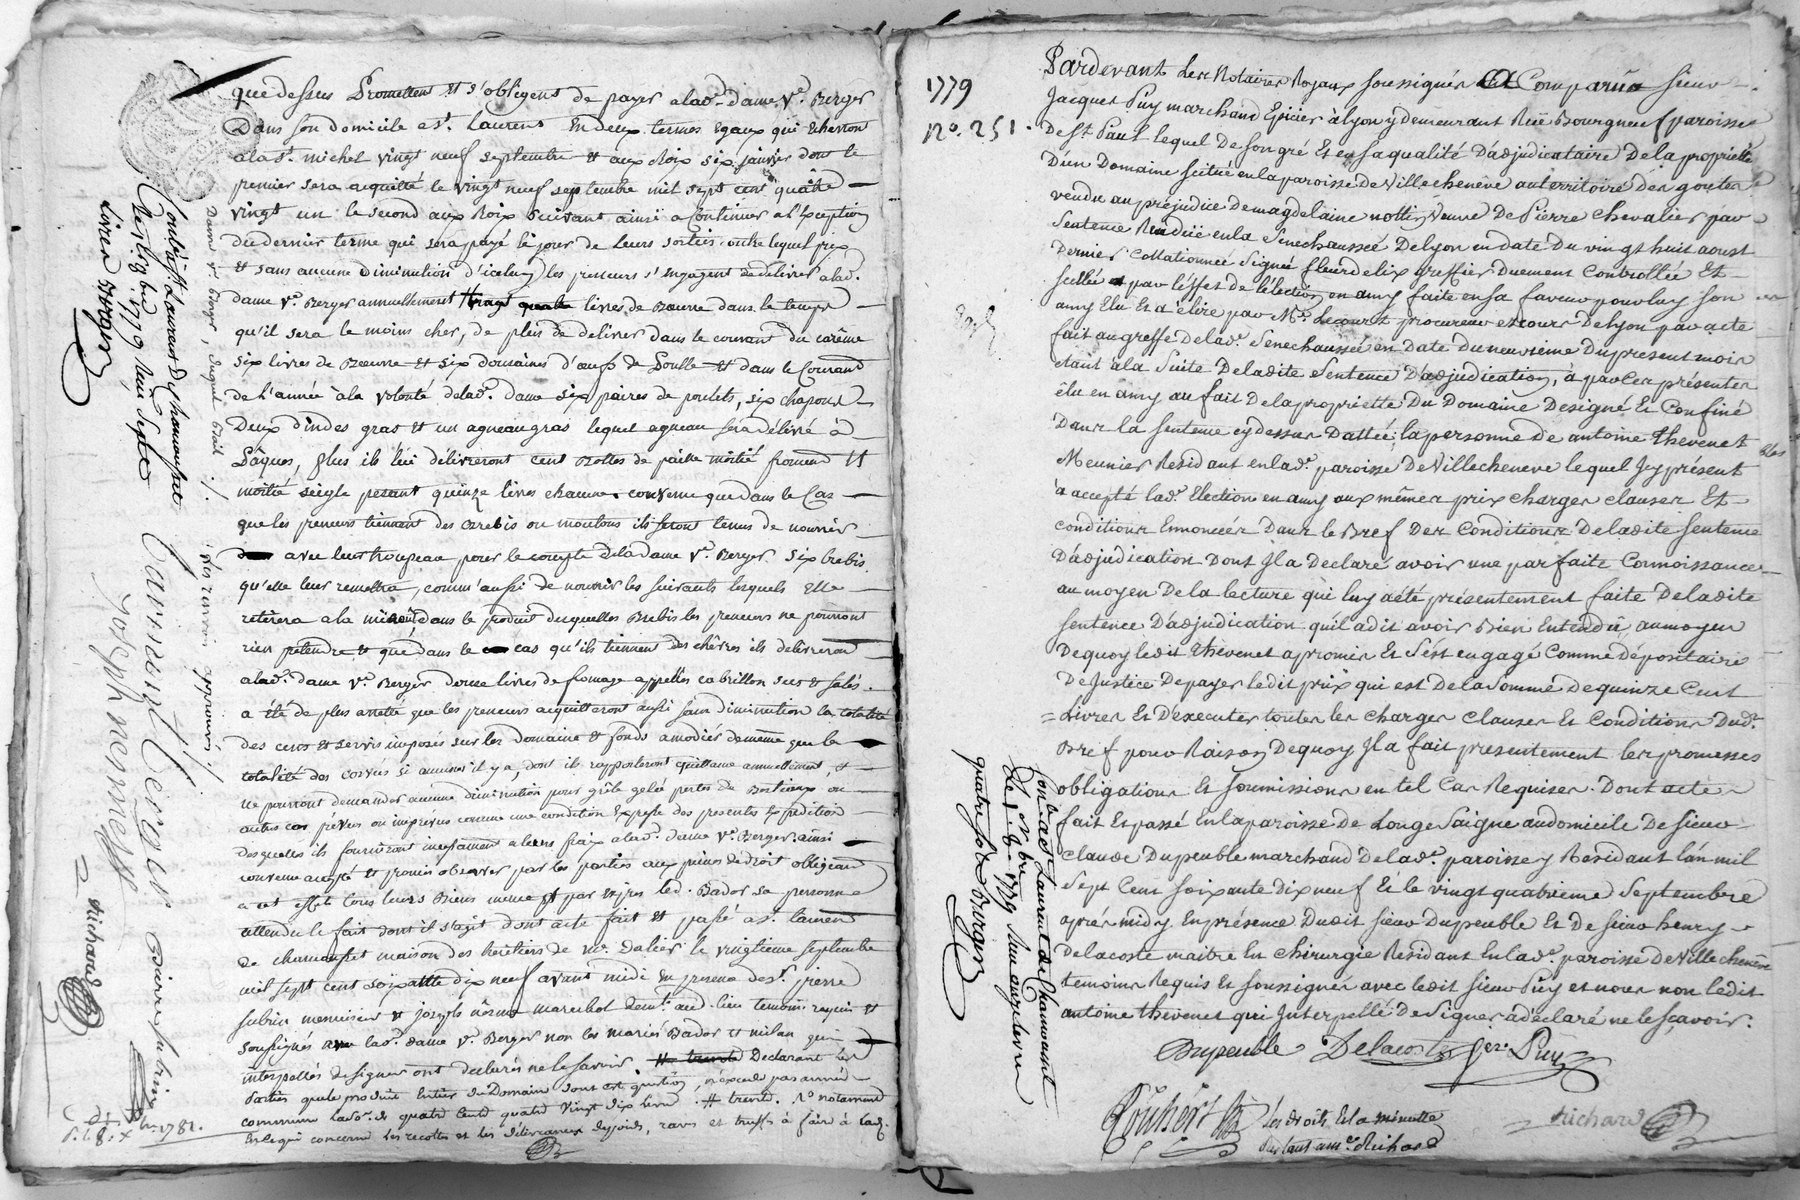 que dessus Promettent et s'obligent de payer a lad.e dame V.e Berger
Dans son domicile a S.t Laurent En deux termes Egaux qui Echerront
a la S.t michel vingt neuf septembre et aux Rois six janvier dont le
premier sera acquitté le vingt neuf septembre mil sept cent quatre
vingt un le second aux Rois suivant ainsi a Continuer a l'Exception
du dernier terme qui sera payé le jour de leurs sorties outre lequel prix
et sans aucune Diminution d'iceluy les preneurs s'engagent de delivrer a lad.
dame V.e Berger annuellement livres de Beurre dans le temps
qu'il sera le moins cher, de plus de delivrer dans le courant du carême
six livres de Beurre et six douzaines d'oeufs de Poulle et dans le Courant
de l'année à la volonté de lad. dame six paires de poulets, six chapons
Deux d'indes gras et un agneau gras lequel agneau sera délivré à
Pâques, plus ils lui délivreront cent Bottes de paille moitié froment et
moitié seigle pesant quinze livres chacune. convenu que dans le Cas
que les preneurs tiennent des Brebis ou moutons ils seront tenus de nourrir
avec leur troupeau pour le compte de la dame V.e Berger six brebis
qu'elle leur remettra, comm'aussi de nourrir les suivants lesquels Elle
retirera a la dans le produit desquelles Brebis les preneurs ne pourront
rien prétendre et que dans le cas qu'ils tiennent des chèvres ils delivreront
a lad. dame V.e Berger douze livres de fromage appellés cabrillon secs et salés
a été de plus arretté que les preneurs acquitteront aussi sans diminution la totalité
des cens et servis imposés sur les domaine et fonds amodiés de même que la
totalité des corvées si aucunes il y a, dont ils rapporteront quittance annuellement, et
ne pourront demander aucune diminution pour grêle gelée pertes de Bestiaux ou
autres cas prévus ou imprevus comme une condition Expresse des presentes Expedition
desquelles ils fourniront a leurs frais a lad. dame V.e Berger. ainsi
convenu accepté et promis observer par les parties aux peines de droit obligeant
a cet effet tous leurs Biens meme et par Exprès led. Bador sa personne
attendu le fait dont il s'agit dont acte fait et passé a S.t Laurent
de chamousset maison des heritiers de M.e Dalier le vingtieme septembre
mil sept cent soixante dix neuf avant midi En presence de S.r pierre
Subrin menuisier et joseph marechal demt. aud. lieu temoins requis et
soussignés avec lad. dame V.e Berger non les mariés Bador et milan qui
interpellés de signer ont declarés ne le savoir. Declarant les
Parties que le produit Entier du Domaine dont est question, n'excede pas année
commune la so.e de quatre Cents quatre vingt dix livres. # trente. notament
En ce qui concerne les recoltes et les, raves et truffes à faire à lad.
Dame V.e Berger, duquel bail
renvoi approuvés
Contl. à S.t Laurent de chamousset
le 1779 Reçu Sept
Livres Burgon
Jannant Berger
Pierre Subrin
joseph
Richard
1781.
1779
N.o 251.
Pardevant Les Notaires Royaux soussignés Comparu sieur
Jacques Puy marchand Epicier à lyon y demeurant Rüe Bourgneuf paroisse
de St. Paul lequel De son gré Et en sa qualité D'adjudicataire De la propriété
D'un Domaine scitué en la paroisse de Ville cheneve au territoire des goutes
vendu au préjudice De magdelaine nottin veuve De Pierre chevalier par
Sentence Rendüe en la Senechaussée De lyon en date du vingt huit aoust
Dernier Collationnée Signée fleurdelix greffier Duement Controllée Et
scellée par l'effet de l'élection en amy faite en sa faveur pour luy son
amy Elu Et à élire par M.e Lecourt procureur Es cours De lyon par acte
fait au greffe De lad.e Senechaussée en Date du neuvieme Du present mois
étant à la Suite De ladite Sentence D'adjudication, à par Ces présentes
élu en amy au fait De la propriette Du Domaine Designé Et Confiné
Dans la Sentence cy dessus Dattée; la personne de antoine thevenet
Meunier Residant en lad.e paroisse De Villecheneve lequel Icy présent
à accepté lad.e Election en amy aux mêmes prix charges clauses Et
conditions Ennoncées Dans le Bref Des Conditions De ladite Sentence
D'adjudication Dont Il a Declaré avoir une parfaite Connoissance
au moyen De la lecture qui luy a été présentement faite De ladite
Sentence D'adjudication qu'il a dit avoir Bien Entendû, au moyen
De quoy ledit Thevenet a promis Et S'est engagé Comme dépositaire
De Justice De payer ledit prix qui est De la Somme De quinze Cent
Livres Et D'executer toutes les charges Clauses Et Conditions Dud.t
Bref pour Raison De quoy Il a fait présentement les promesses
obligations Et soumissions en tel Cas Requises. Dont acte
fait Et passé En la paroisse de Longe Saigne au domicile De sieur
Claude Dupeuble marchand De lad.e paroisse y Residant l'an mil
sept Cent soixante dix neuf Et le vingt quatrieme Septembre
après midy En présence Dudit sieur Dupeuble Et De sieur henry
Delacoste maitre En chirurgie Residant En lad.e paroisse De Ville cheneve
temoins Requis Et soussignés avec ledit sieur Puy et nous non ledit
antoine thevenet qui Interpellé De Signer a déclaré ne le Sçavoir.
Dupeuble Delacoste Puy
les droits Et la minutte
Richard
Richard
Con. à S.t Laurent de Chamousset
Le 8bre 1779 Reçu onze livres
quatre sols Burgon